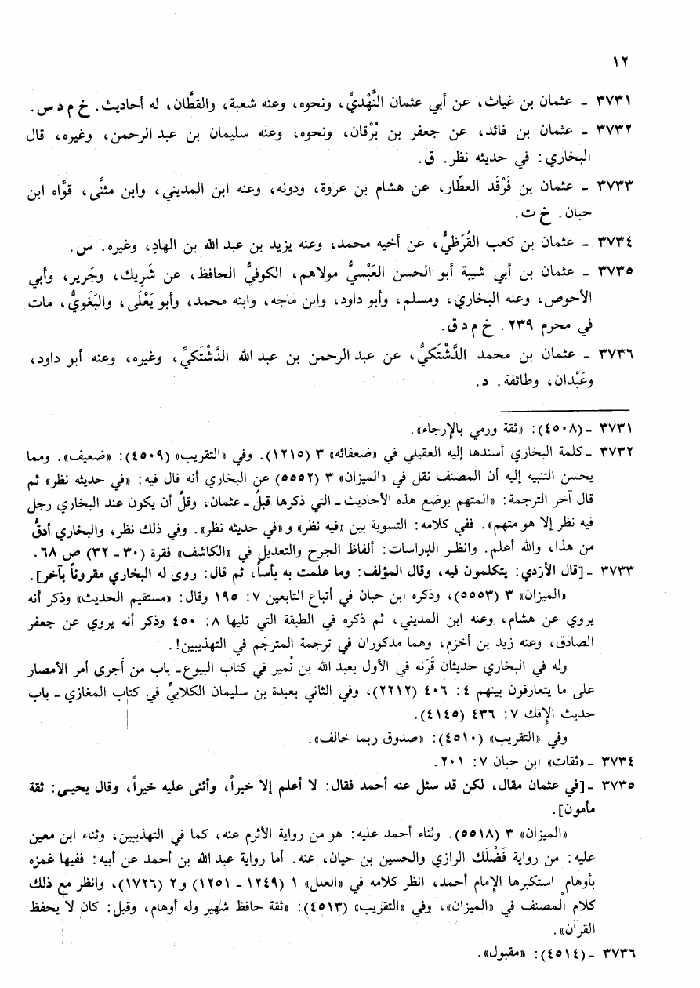 ١٢
٣٧٣١ ـ عثمان بن غياث، عن أبي عثمان النَّهْديِّ، ونحوه، وعنه شعبة، والقطَّان، له أحاديث. خ م د س.
٣٧٣٢ ـ عثمان بن فائد، عن جعفر بن بُرْقان، ونحوه، وعنه سليمان بن عبد الرحمن، وغيره، قال
البخاري: في حديثه نظر. ق.
٣٧٣٣ ـ عثمان بن فَرْقَد العطَّار، عن هشام بن عروة، ودونه، وعنه ابن المديني، وابن مثنَّى، قوَّاه ابن
حبان. خ ت.
٣٧٣٤ ـ عثمان بن كعب القُرَظيُّ، عن أخيه محمد، وعنه يزيد بن عبد الله بن الهادِ، وغيره. س.
٣٧٣٥ ـ عثمان بن أبي شيبة أبو الحسن العَبْسيُّ مولاهم، الكوفيُّ الحافظ، عن شَرِيك، وجَرير، وأبي
الأحوص، وعنه البخاري، ومسلم، وأبو داود، وابن ماجه، وابنه محمد، وأبو يَعْلَى، والبَغَويُّ، مات
في محرم ٢٣٩. خ م د ق.
٣٧٣٦ ـ عثمان بن محمد الدَّشْتَكيُّ، عن عبد الرحمن بن عبد الله الدَّشْتَكيِّ، وغيره، وعنه أبو داود،
وعَبْدان، وطائفة. د.
٣٧٣١ ـ (٤٥٠٨): «ثقة ورمي بالإرجاء».
٣٧٣٢ ـ كلمة البخاري أسندها إليه العقيلي في «ضعفائه» ٣ (١٢١٥). وفي «التقريب» (٤٥٠٩): «ضعيف». ومما
يحسن التنبيه إليه أن المصنف نقل في «الميزان» ٣ (٥٥٥٢) عن البخاري أنه قال فيه: «في حديثه نظر» ثم
قال آخر الترجمة: «المتهم بوضع هذه الأحاديث ـ التي ذكرها قبلُ ـ عثمان، وقلَّ أن يكون عند البخاري رجل
فيه نظر إلا هو متهم». ففي كلامه: التسوية بين «فيه نظر» و«في حديثه نظر». وفي ذلك نظر، والبخاري أدقُّ
من هذا، والله أعلم. وانظر الدراسات: ألفاظ الجرح والتعديل في «الكاشف» فقرة (٣٠ ـ ٣٢) ص ٦٨.
٣٧٣٣ ـ [قال الأزدي: يتكلمون فيه، وقال المؤلف: وما علمت به بأساً، ثم قال: روى له البخاري مقروناً بآخر].
«الميزان» ٣ (٥٥٥٣)، وذكره ابن حبان في أتباع التابعين ٧: ١٩٥ وقال: «مستقيم الحديث» وذكر أنه
يروي عن هشام، وعنه ابن المديني، ثم ذكره في الطبقة التي تليها ٨: ٤٥٠ وذكر أنه يروي عن جعفر
الصادق، وعنه زيد بن أخزم، وهما مذكوران في ترجمة المترجَم في التهذيبين!.
وله في البخاري حديثان قَرَنه في الأول بعبد الله بن نُمير في كتاب البيوع ـ باب من أجرى أمر الأمصار
على ما يتعارفون بينهم ٤: ٤٠٦ (٢٢١٢)، وفي الثاني بعبدة بن سليمان الكلابيِّ في كتاب المغازي ـ باب
حديث الإفك ٧: ٤٣٦ (٤١٤٥).
وفي «التقريب» (٤٥١٠): «صدوق ربما خالف».
٣٧٣٤ ـ «ثقات» ابن حبان ٧: ٢٠١.
٣٧٣٥ ـ [في عثمان مقال، لكن قد سئل عنه أحمد فقال: لا أعلم إلا خيراً، وأثنى عليه خيراً، وقال يحيى: ثقة
مأمون].
«الميزان» ٣ (٥٥١٨). وثناء أحمد عليه: هو من رواية الأثرم عنه، كما في التهذيبين، وثناء ابن معين
عليه: من رواية فَضْلَك الرازي والحسين بن حيان، عنه. أما رواية عبد الله بن أحمد عن أبيه: ففيها غمزه
بأوهام استكبرها الإمام أحمد، انظر كلامه في «العلل» ١ (١٢٤٩ ـ ١٢٥١) و٢ (١٧٢٦)، وانظر مع ذلك
كلام المصنف في «الميزان»، وفي «التقريب» (٤٥١٣): «ثقة حافظ شهير وله أوهام، وقيل: كان لا يحفظ
القرآن».
٣٧٣٦ ـ (٤٥١٤): «مقبول».